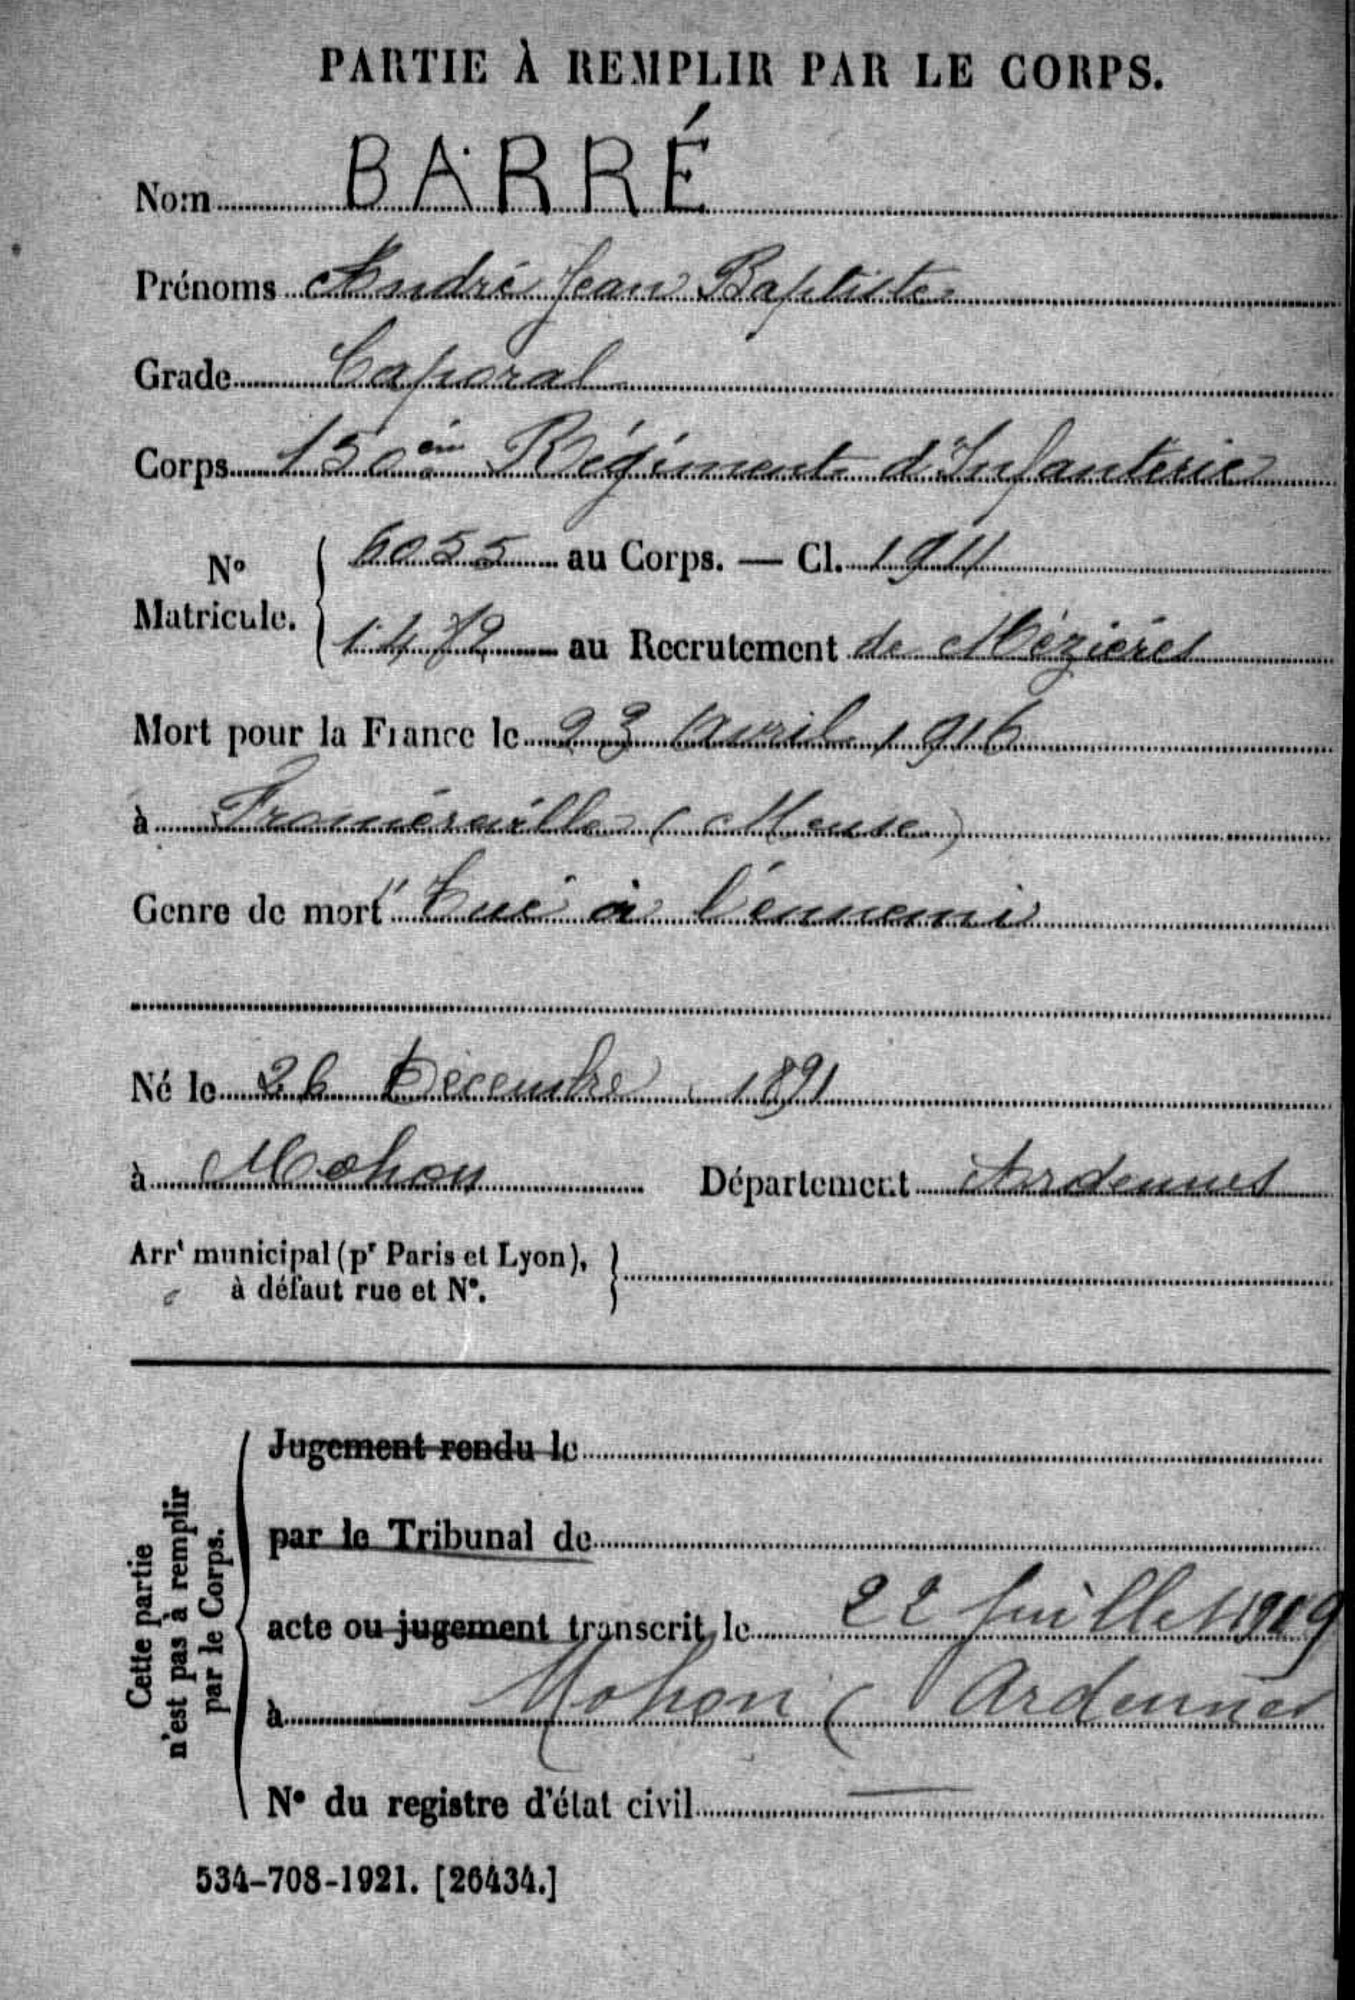 PARTIE À REMPLIR PAR LE CORPS.
Nom BARRÉ
Prénoms André Jean Baptiste
Grade Caporal
Corps 150ème Régiment d'Infanterie
No Matricule. 6055 au Corps. — Cl. 1911
1472 au Recrutement de Mézières
Mort pour la France le 23 Avril 1916
à Froméréville (Meuse)
Genre de mort "Tué à l'ennemi
Né le 26 Décembre 1891
à Mohon Département Ardennes
Arrt municipal (pr Paris et Lyon),
à défaut rue et No.
Cette partie
n'est pas à remplir
par le Corps.
Jugement rendu le
par le Tribunal de
acte ou jugement transcrit le 22 Juillet 1919
à Mohon (Ardennes
No du registre d'état civil —
534-708-1921. [26434.]